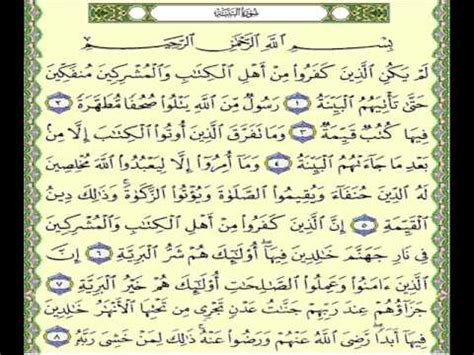 سُورَةُ البَيِّنَةِ
بِسْمِ ٱللَّهِ ٱلرَّحْمَٰنِ ٱلرَّحِيمِ
لَمْ يَكُنِ ٱلَّذِينَ كَفَرُوا۟ مِنْ أَهْلِ ٱلْكِتَٰبِ وَٱلْمُشْرِكِينَ مُنفَكِّينَ
حَتَّىٰ تَأْتِيَهُمُ ٱلْبَيِّنَةُ ١ رَسُولٌ مِّنَ ٱللَّهِ يَتْلُوا۟ صُحُفًا مُّطَهَّرَةً ٢
فِيهَا كُتُبٌ قَيِّمَةٌ ٣ وَمَا تَفَرَّقَ ٱلَّذِينَ أُوتُوا۟ ٱلْكِتَٰبَ إِلَّا مِنۢ
بَعْدِ مَا جَآءَتْهُمُ ٱلْبَيِّنَةُ ٤ وَمَآ أُمِرُوٓا۟ إِلَّا لِيَعْبُدُوا۟ ٱللَّهَ مُخْلِصِينَ
لَهُ ٱلدِّينَ حُنَفَآءَ وَيُقِيمُوا۟ ٱلصَّلَوٰةَ وَيُؤْتُوا۟ ٱلزَّكَوٰةَ ۚ وَذَٰلِكَ دِينُ
ٱلْقَيِّمَةِ ٥ إِنَّ ٱلَّذِينَ كَفَرُوا۟ مِنْ أَهْلِ ٱلْكِتَٰبِ وَٱلْمُشْرِكِينَ
فِى نَارِ جَهَنَّمَ خَٰلِدِينَ فِيهَآ ۚ أُو۟لَٰٓئِكَ هُمْ شَرُّ ٱلْبَرِيَّةِ ٦ إِنَّ
ٱلَّذِينَ ءَامَنُوا۟ وَعَمِلُوا۟ ٱلصَّٰلِحَٰتِ أُو۟لَٰٓئِكَ هُمْ خَيْرُ ٱلْبَرِيَّةِ ٧
جَزَآؤُهُمْ عِندَ رَبِّهِمْ جَنَّٰتُ عَدْنٍ تَجْرِى مِن تَحْتِهَا ٱلْأَنْهَٰرُ خَٰلِدِينَ
فِيهَآ أَبَدًا ۖ رَّضِىَ ٱللَّهُ عَنْهُمْ وَرَضُوا۟ عَنْهُ ۚ ذَٰلِكَ لِمَنْ خَشِىَ رَبَّهُۥ ٨